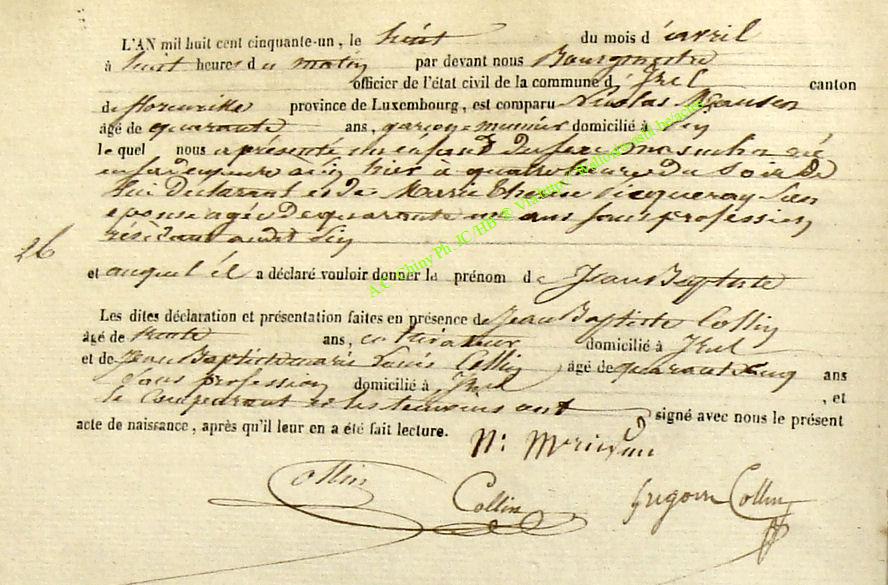 L'AN mil huit cent cinquante-un, le huit du mois d'avril
à huit heures du matin par devant nous Bourgmestre
officier de l'état civil de la commune d' Izel canton
de florenville province de Luxembourg, est comparu Nicolas
âgé de quarante ans, garçon meunier domicilié à
le quel nous a présenté un enfant du sexe masculin né
hier à quatre heures du soir de
lui déclarant et de Marie Therese Jacqueray son
épouse agée de quarante un ans sans profession
résidant audit
26
et auquel il a déclaré vouloir donner le prénom de Jean Baptiste
Les dites déclaration et présentation faites en présence de Jean Baptiste Collin
âgé de trente ans, cultivateur domicilié à Izel
et de Jean Baptiste marie Louis Collin âgé de quarante cinq ans
sans profession domicilié à Izel , et
le Comparant et les temoins ont signé avec nous le présent
acte de naissance, après qu'il leur en a été fait lecture.
N:
Collin
Collin
Gregoire Collin